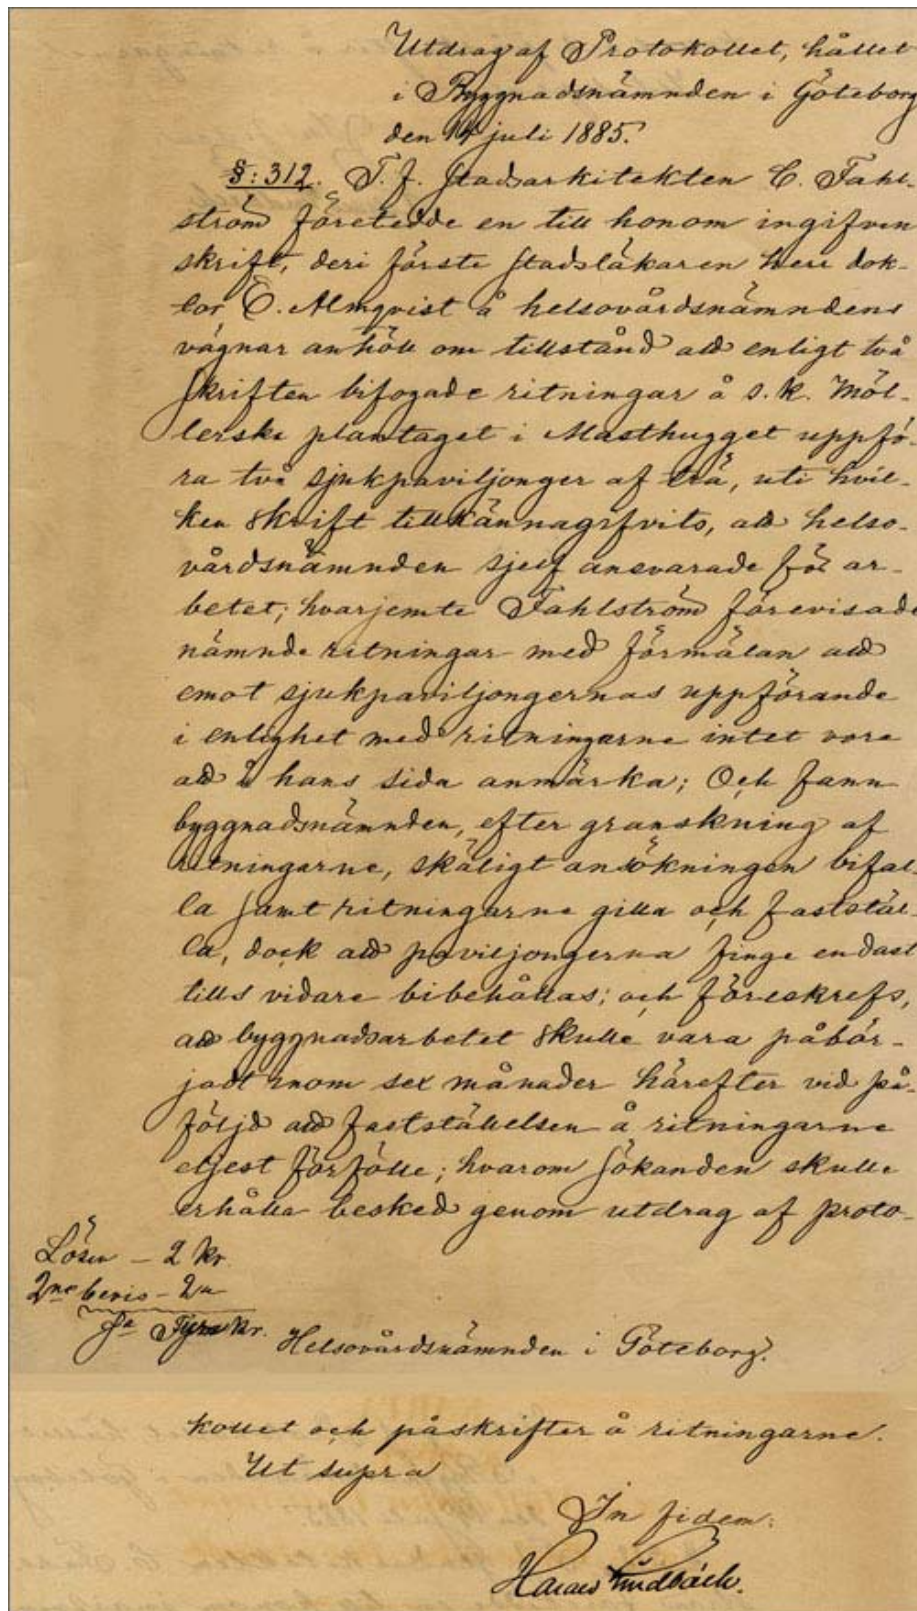 Utdrag af Protokollet, hållet
i Byggnadsnämnden i Göteborg
den 14 juli 1885.
§: 312. T. f. Stadsarkitekten C. Fahl-
ström företedde en till honom ingifven
skrift, deri förste stadsläkaren herr dok-
tor E. Almqvist å helsovårdsnämndens
vägnar anhöll om tillstånd att enligt två
skriften bifogade ritningar å s. k. Möl-
lerska plantaget i Masthugget uppfö-
ra två sjukpaviljonger af trä, uti hvil-
ken skrift tillkännagifvits, att helso-
vårdsnämnden sjelf ansvarade för ar-
betet; hvarjemte Fahlström förevisade
nämnde ritningar med förmälan att
emot sjukpaviljongernas uppförande
i enlighet med ritningarne intet vore
att å hans sida anmärka; Och fann
byggnadsnämnden, efter granskning af
ritningarne, skäligt ansökningen bifal-
la samt ritningarne gilla och faststäl-
la, dock att paviljongerna finge endast
tills vidare bibehållas; och föreskrefs,
att byggnadsarbetet skulle vara påbör-
jadt inom sex månader härefter vid på-
följd att fastställelsen å ritningarne
eljest förfölle; hvarom sökanden skulle
erhålla besked genom utdrag af proto-
Lösen - 2 kr.
2ne bevis - 2 "
Sa Fyra kr.
Helsovårdsnämnden i Göteborg.
kollet och påskrifter å ritningarne.
Ut supra
In fidem:
Harald Lindbäck.